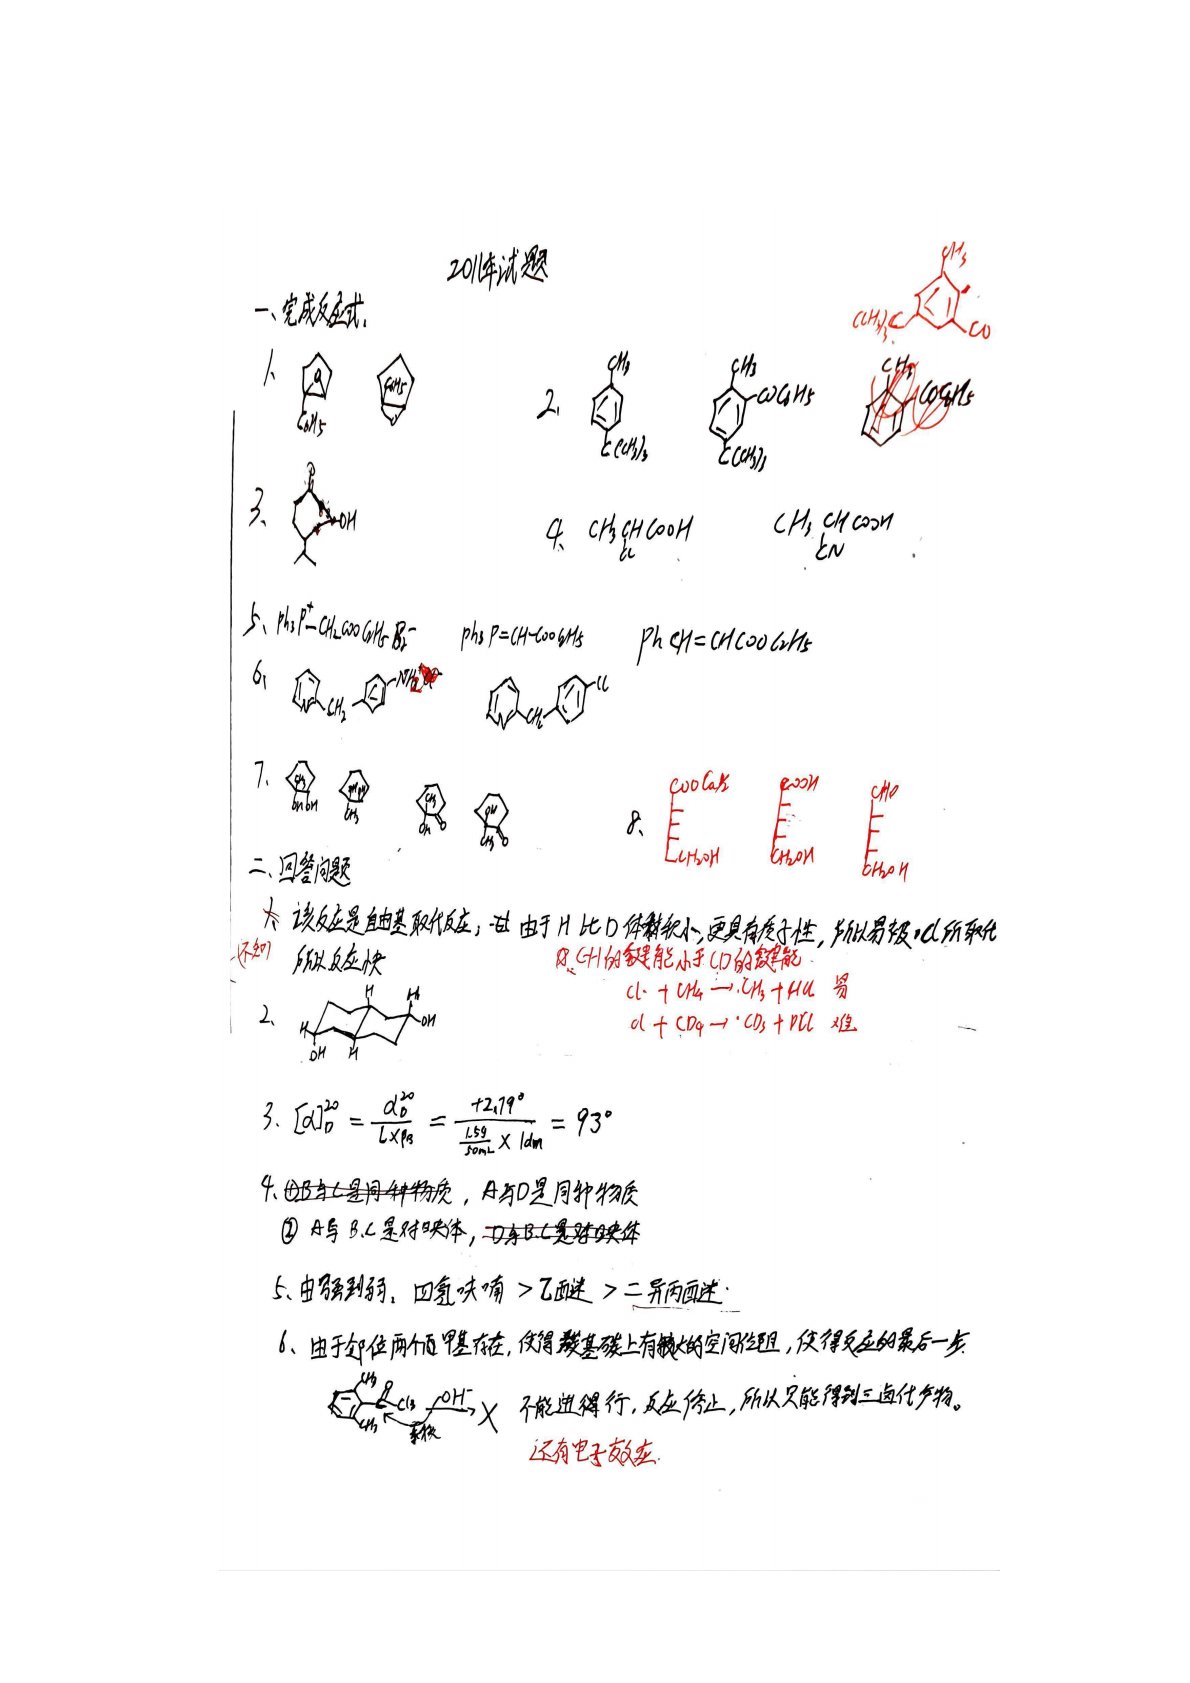 2011年试题
一、完成反应式.
CH3
C(CH3)3
CO
1、
C6H5
C6H5
2、
CH3
C(CH3)3
CH3
COC6H5
C(CH3)3
CH3
COC6H5
3、
OH
4、
CH3CHCOOH
Cl
CH3CHCOOH
CN
5、Ph3P+-CH2COOC2H5Br-
Ph3P=CH-COOC2H5
PhCH=CHCOOC2H5
6、
N
CH2
NH2
N
CH2
Cl
7、
CH3
OH OH
CH3
CH3
OH
O
OH
CH3
O
8、
CH2OH
COOH
CH2OH
CHO
CH2OH
二、回答问题
1、该反应是自由基取代反应; 由于H比D体积较小,更具有质子性,所以易被·Cl所取代
所以反应快
CH的键能小于CD的键能
Cl· + CH4 → ·CH3 + HCl 易
Cl + CD4 → ·CD3 + DCl 难
2、
H
H
OH
H
OH
H
3、[α]D20 = αD20 / L×ρB = +2.79° / (1.5g/50mL × 1dm) = 93°
4、①B与C是同种物质, A与D是同种物质
② A与B.C是对映体, D与B.C是对映体
5、由强到弱: 四氢呋喃 > 乙醚 > 二异丙醚.
6、由于邻位两个甲基存在,使得羰基碳上有较大的空间位阻,使得反应的最后一步
CH3
O
Cl3
CH3
OH-
X
不能进得行,反应停止,所以只能得到三卤代产物。
还有电子效应.